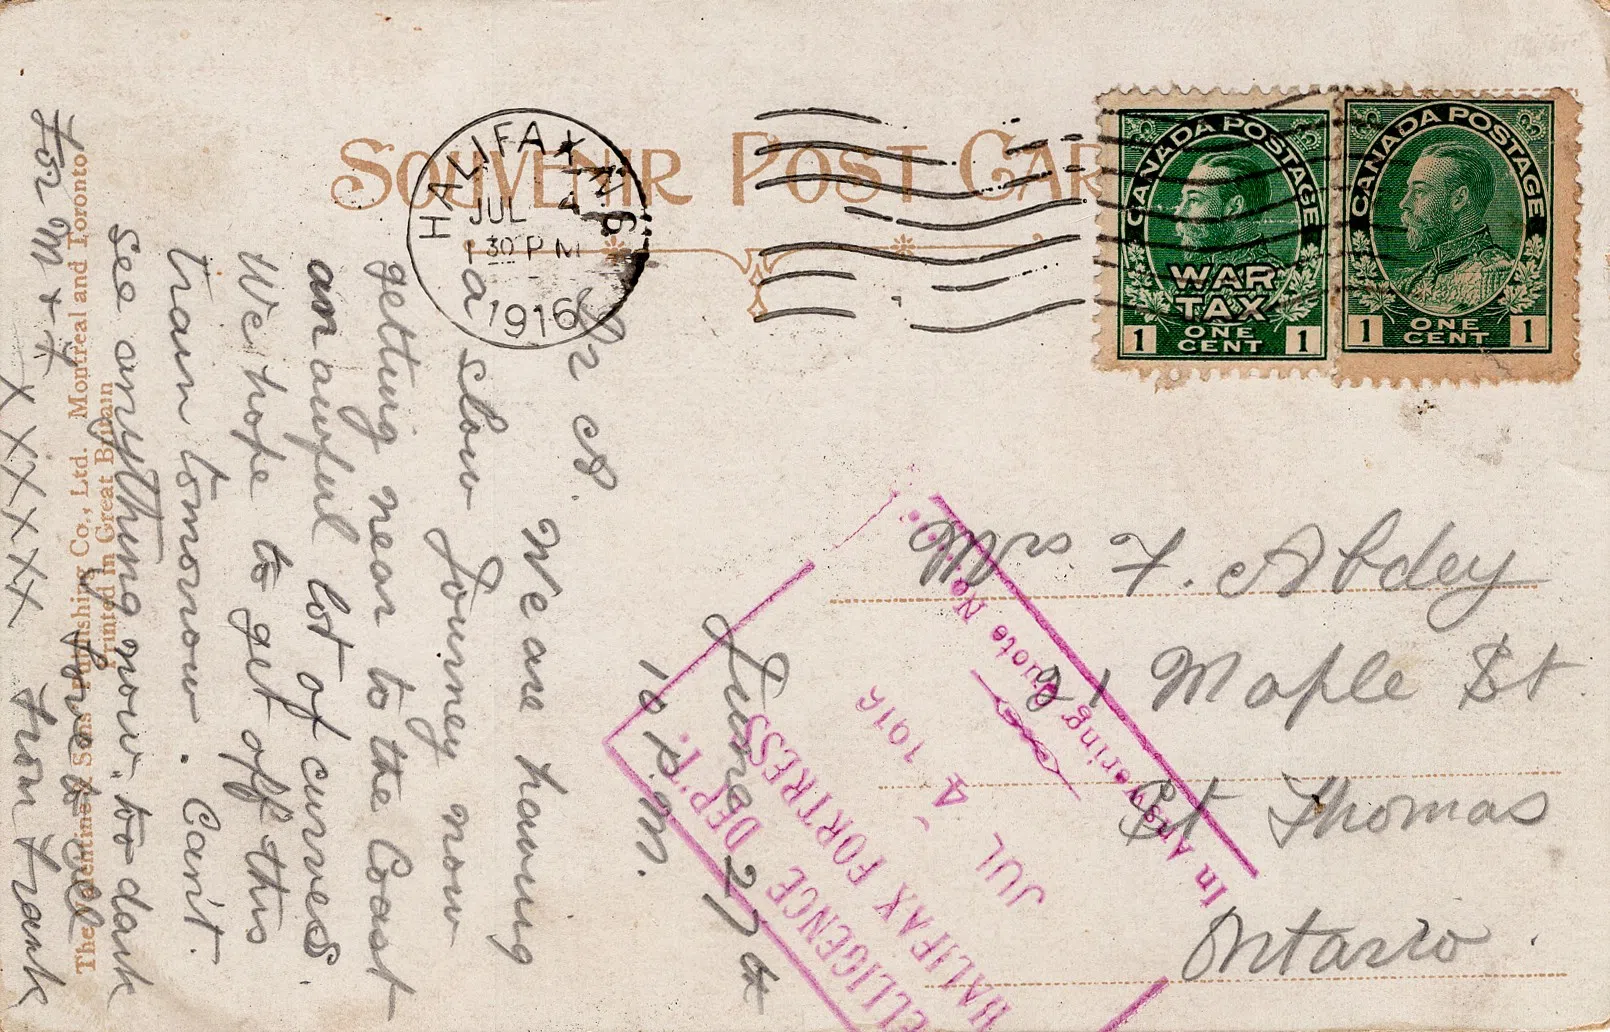 SOUVENIR POST CAR
HALIFAX N.S
JUL 4
1 30 PM
1916
CANADA POSTAGE
WAR
TAX
1 ONE CENT 1
CANADA POSTAGE
1 ONE CENT 1
June 27th
10 P.M.
We are having
a slow Journey now
getting near to the Coast
an awful lot of curves
We hope to get off this
train tomorrow. Can't
see anything now. too dark
love to all
from Frank
For M + X
XXXXXX
Mrs F. Abdey
21 Maple St
St Thomas
Ontario.
In Answering Quote No.:
JUL 4 1916
HALIFAX FORTRESS
ELLIGENCE DEP'T.
The Valentine & Sons Publishing Co., Ltd. Montreal and Toronto
Printed in Great Britain